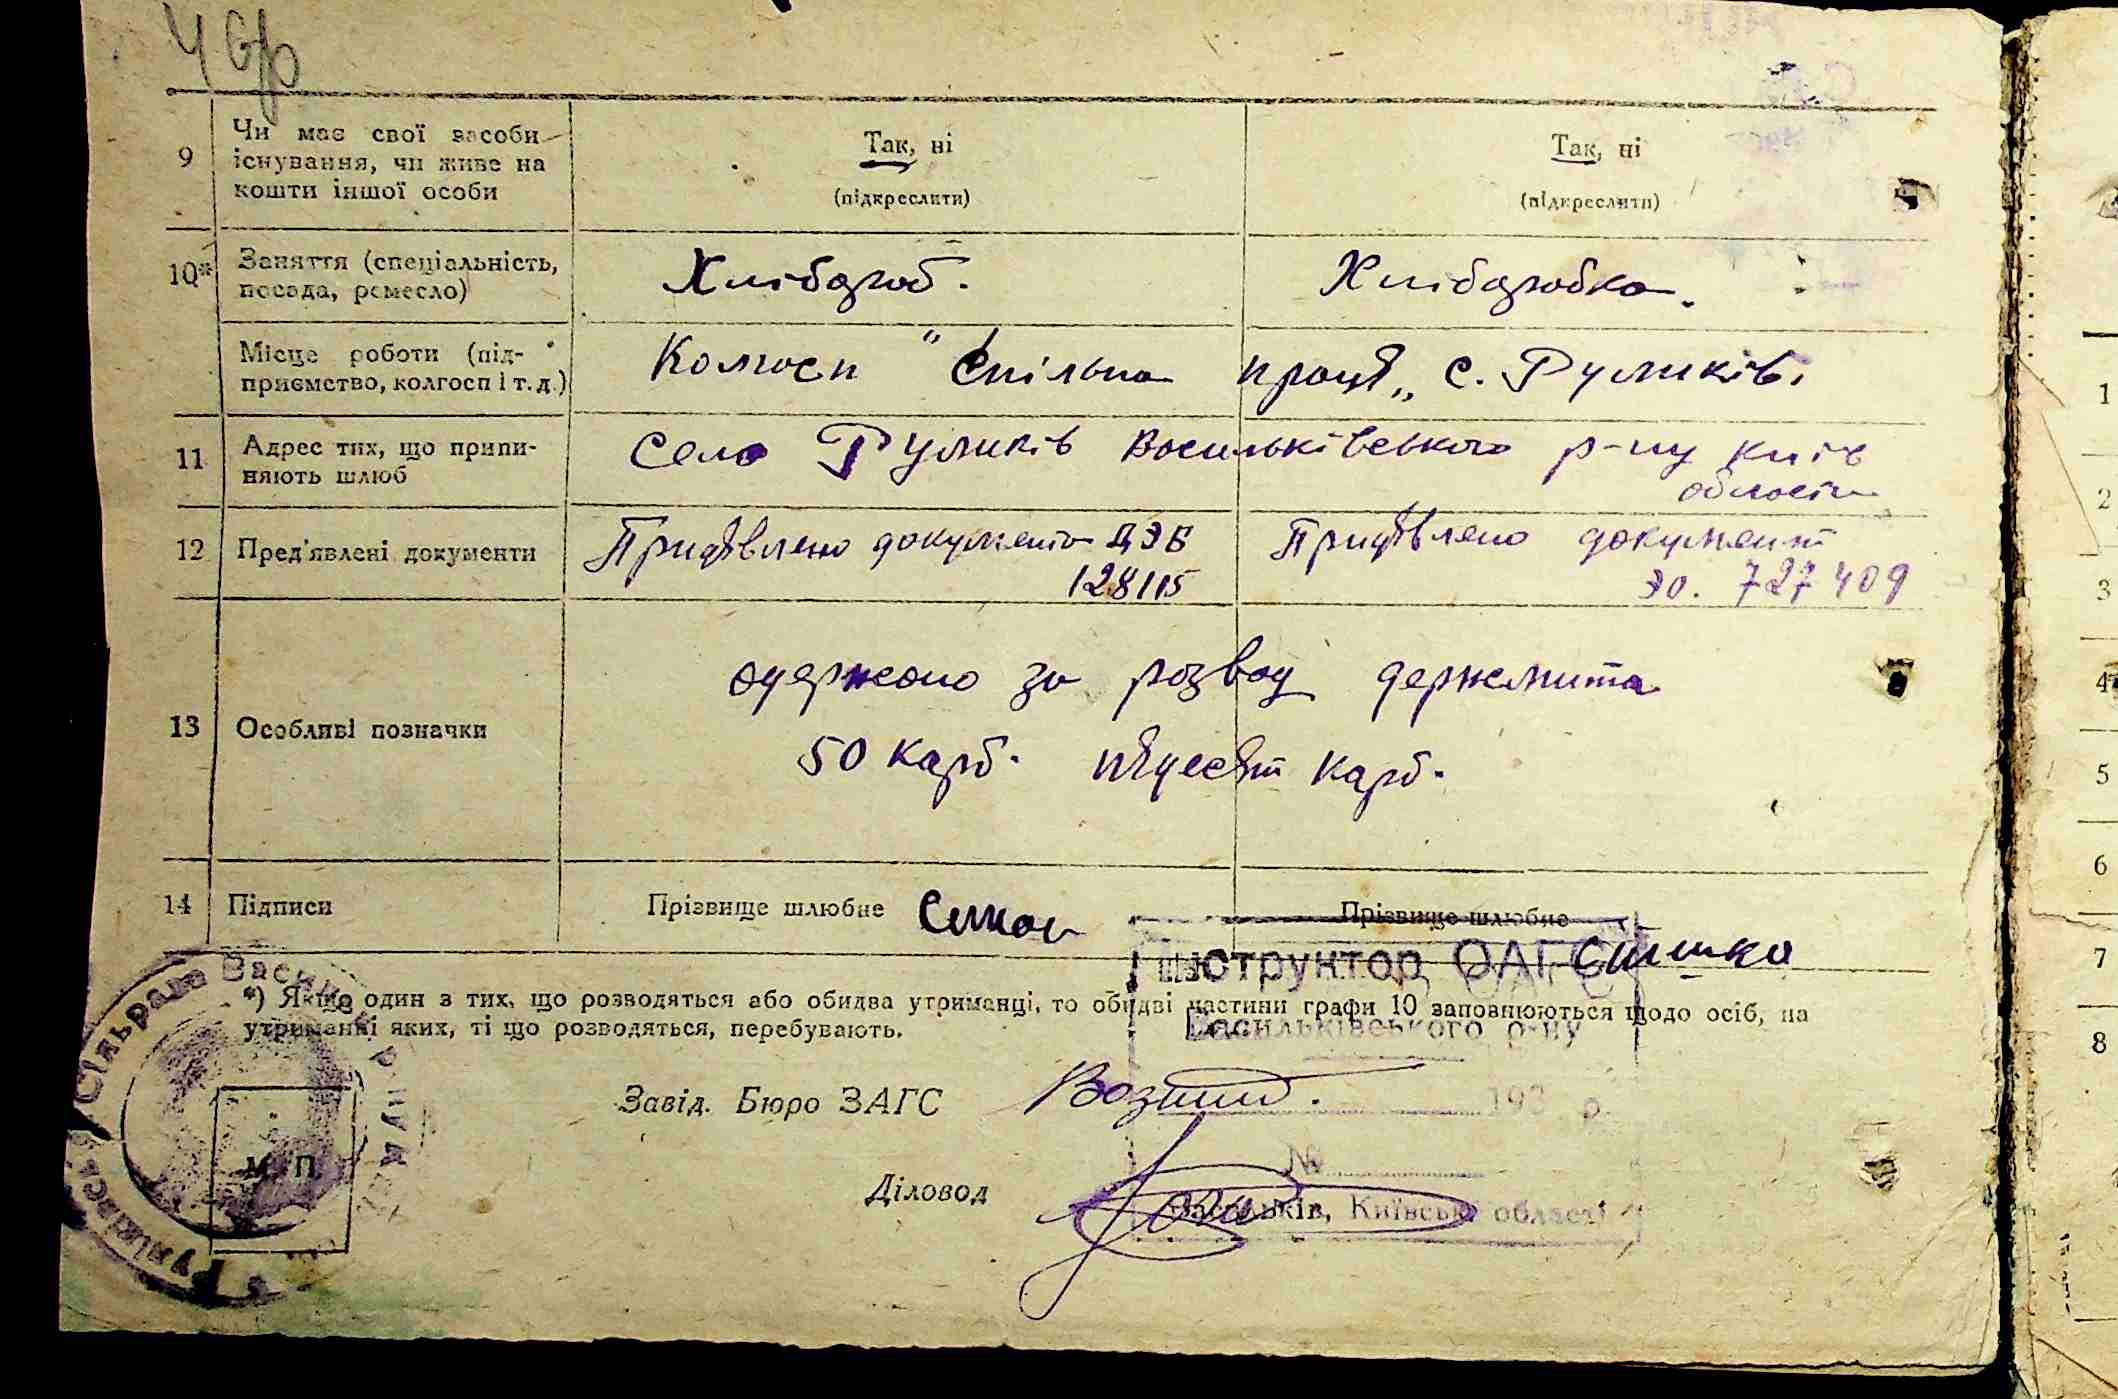 9 Чи має свої засоби
існування, чи живе на
кошти іншої особи
Так, ні
(підкреслити)
Так, ні
(підкреслити)
10* Заняття (спеціальність,
посада, ремесло)
Хлібороб.
Хліборобка.
Місце роботи (під-
приємство, колгосп і т. д.)
Колгосп "Спільна праця„ с. Руликів.
11 Адрес тих, що припи-
няють шлюб
Село Руликів Васильківського р-ну Київ
області
12 Пред'явлені документи
документ ДЭБ
128115
документ
ЭО. 727409
13 Особливі позначки
одержано за розвод держмита
50 карб. пядесят карб.
14 Підписи
Прізвище шлюбне
Прізвище шлюбне
Інструктор ОАГС
*) Якщо один з тих, що розводяться або обидва утриманці, то обидві частини графи 10 заповнюються щодо осіб, на
утриманні яких, ті що розводяться, перебувають.
Васильківського р-ну
Завід. Бюро ЗАГС
193 р.
М. П.
№
Діловод
Васильків, Київської області
1
2
3
4
5
6
7
8